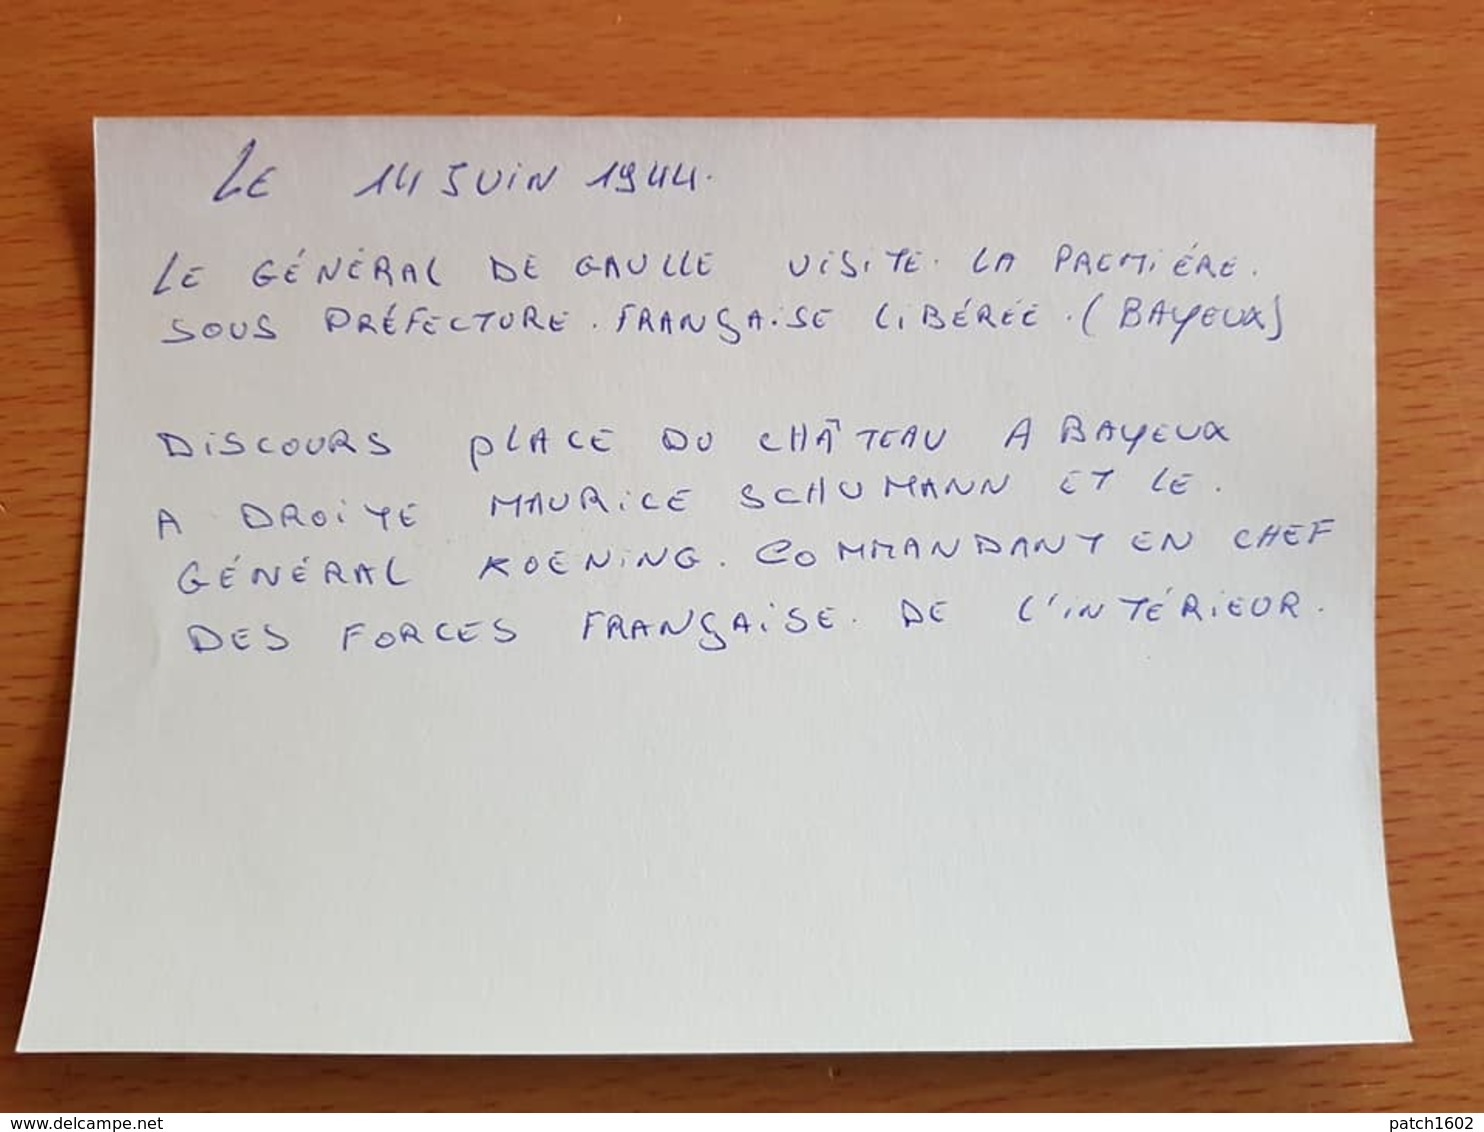 LE 14 JUIN 1944.
LE GÉNÉRAL DE GAULLE VISITE. LA PREMIÉRE.
SOUS PRÉFECTURE. FRANÇAISE LIBÉRÉE. (BAYEUX)
DISCOURS PLACE DU CHÂTEAU A BAYEUX
A DROITE MAURICE SCHUMANN ET LE.
GÉNÉRAL KOENING. COMMANDANT EN CHEF
DES FORCES FRANÇAISE. DE L'INTÉRIEUR.
www.delcampe.net
patch1602